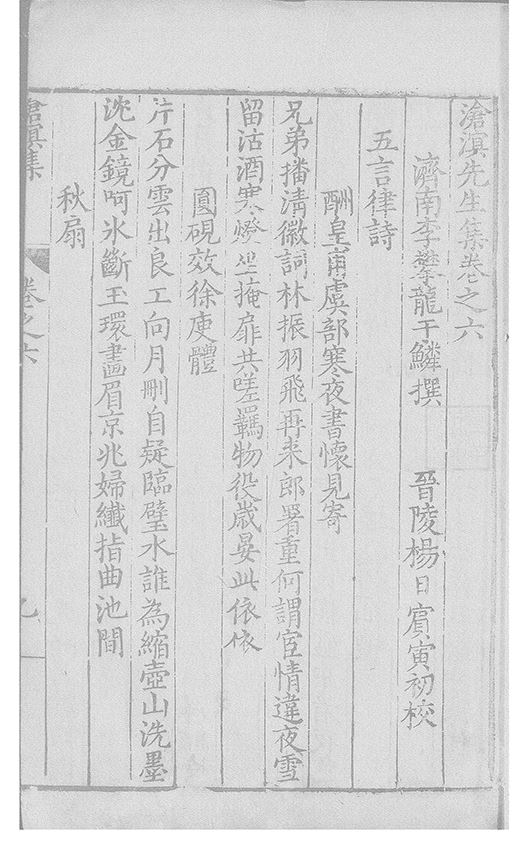 滄溟先生集卷之六
濟南李攀龍于鱗撰　晉陵楊日賓寅初校
五言律詩
酬皇甫虞部寒夜書懷見寄
兄弟播清徽詞林振羽飛再来郎署重何謂宦情違夜雪
留沽酒寒燈坐掩扉共嗟羈物役歲晏此依依
圓硯效徐庾體
片石分雲出良工向月刪自疑臨璧水誰為縮壺山洗墨
沈金鏡呵氷斷玉環畫眉京兆婦纖指曲池間
秋扇
滄溟集
卷之六